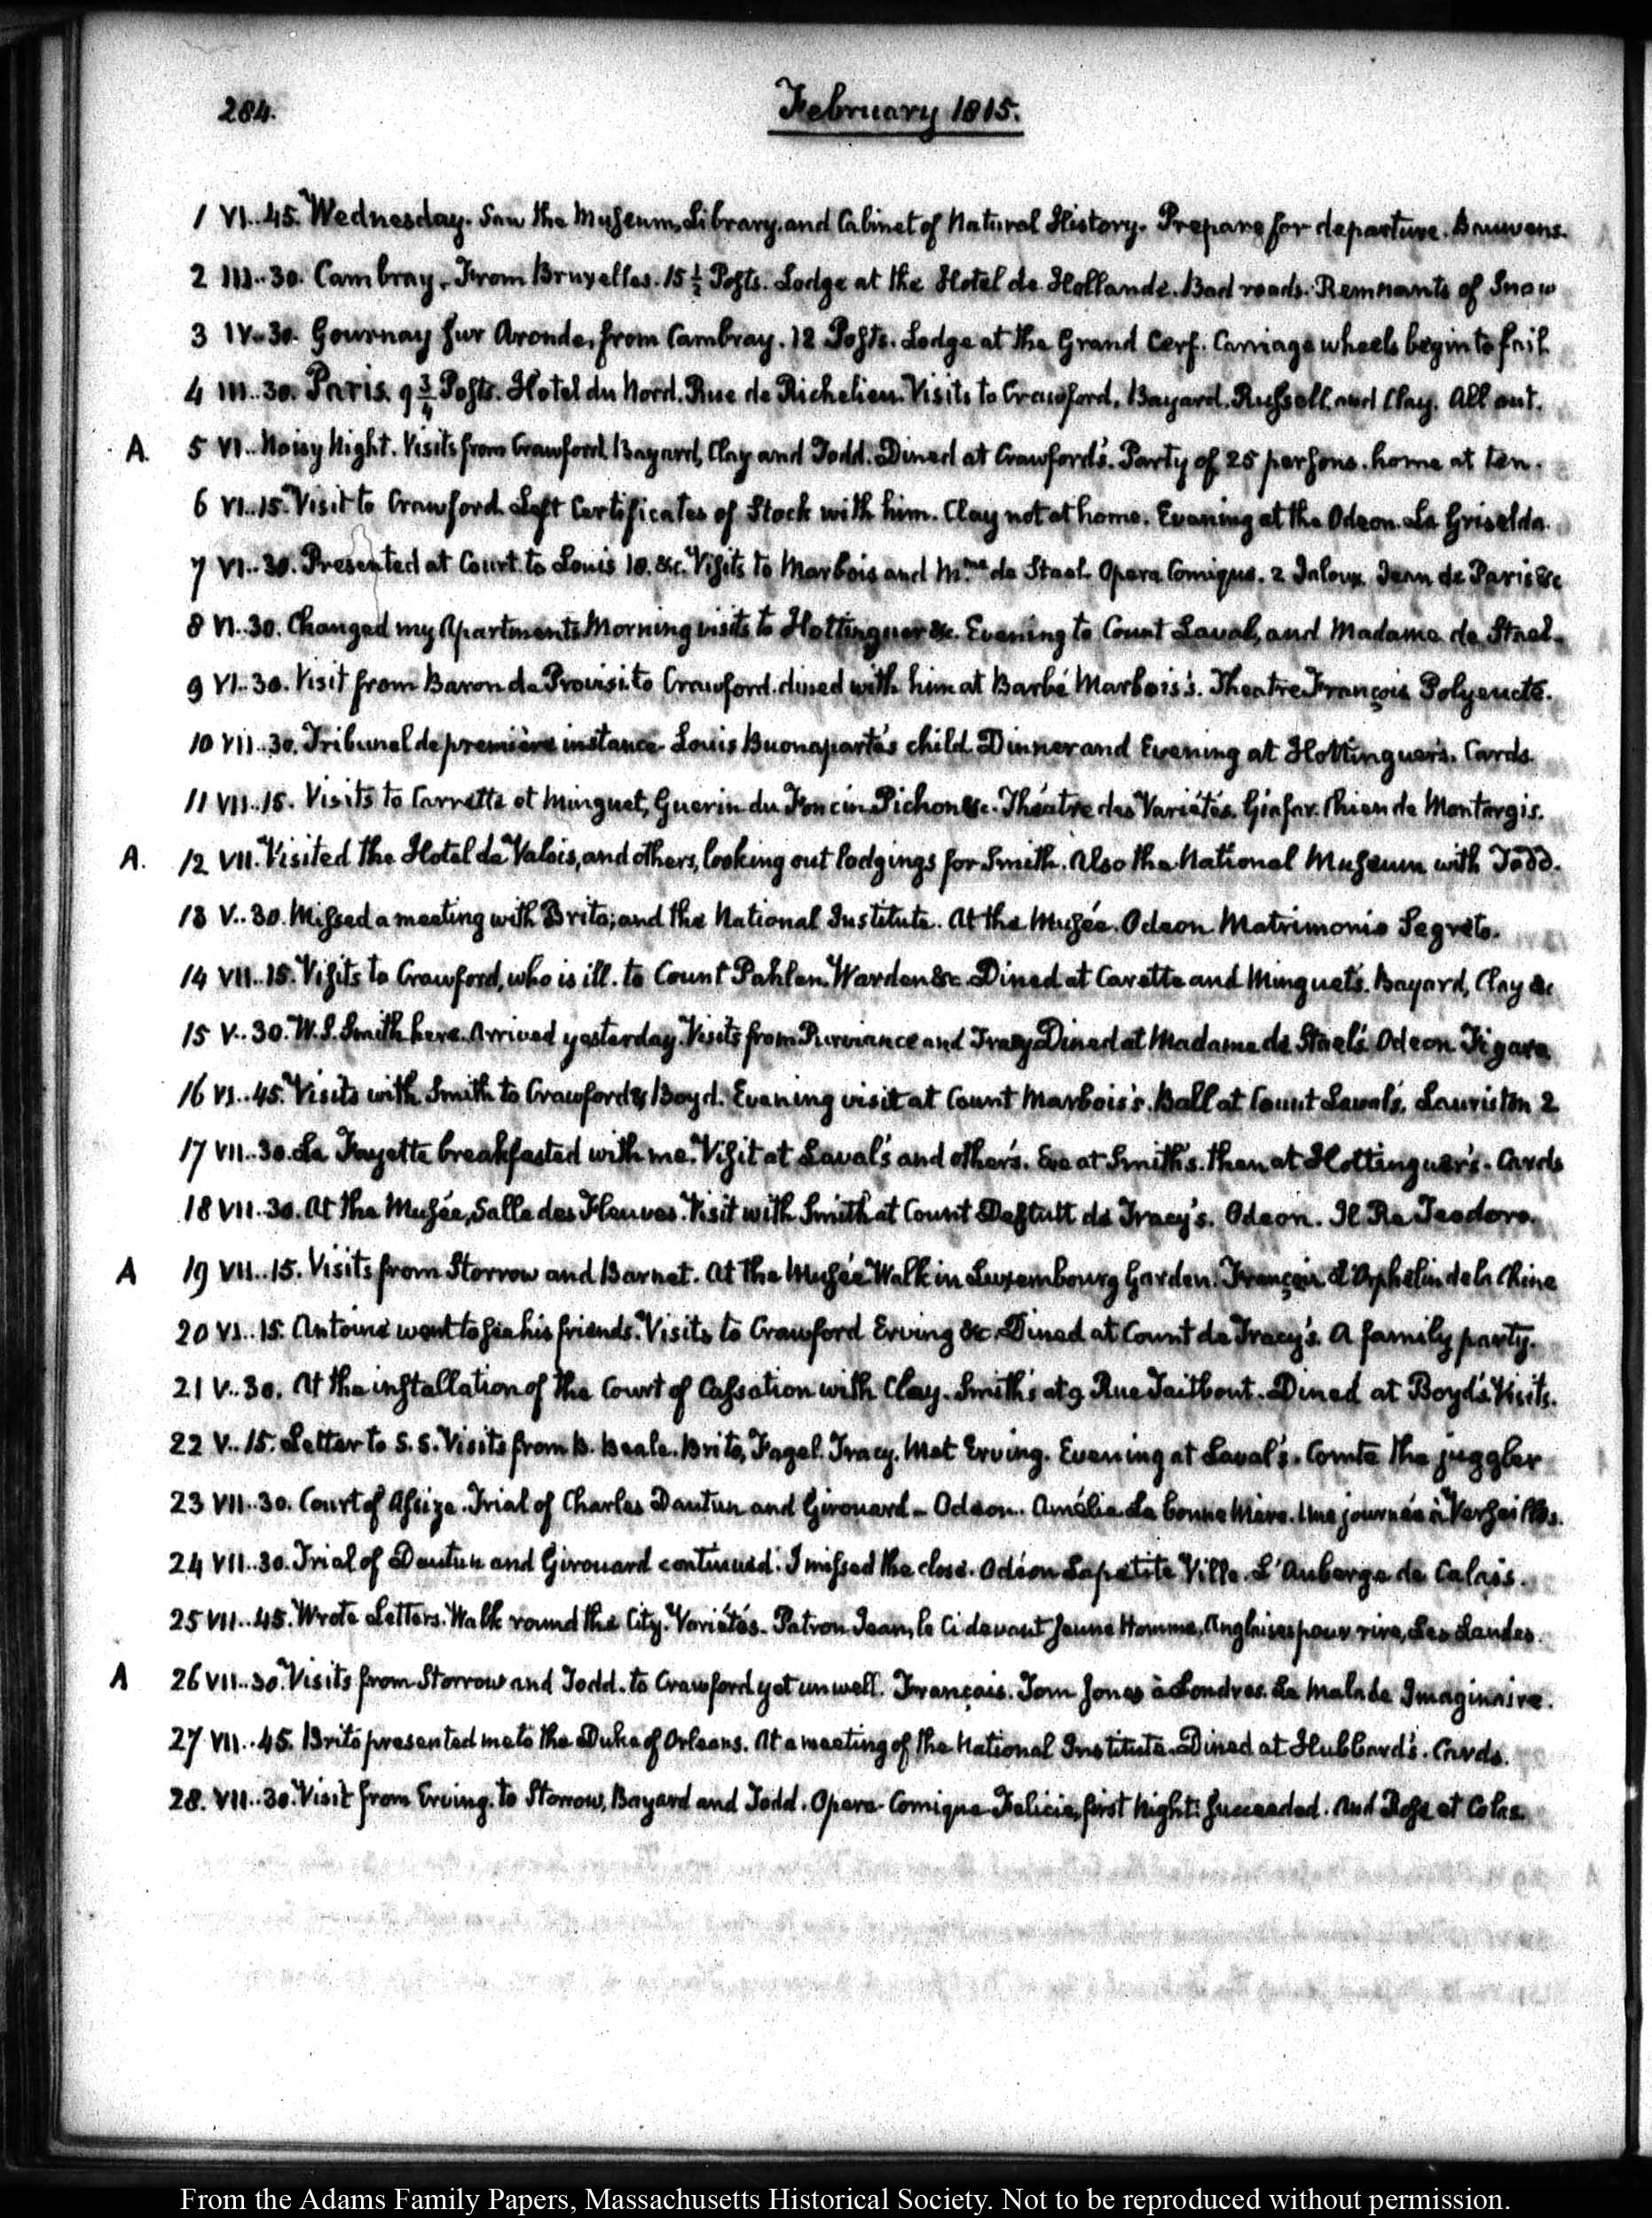 284.
February 1815.
1 VI..45. Wednesday. Saw the Museum, Library, and Cabinet of Natural History. Prepare for departure. Bauwens.
2 III..30. Cambray. From Bruxelles. 15 1/2 Posts. Lodge at the Hotel de Hollande. Bad roads. Remnants of Snow
3 IV..30. Gournay sur Aronde, from Cambray. 12 Posts. Lodge at the Grand Cerf. Carriage wheels begin to fail.
4 III..30. Paris. 9 3/4 Posts. Hotel du Nord. Rue de Richelieu. Visits to Crawford, Bayard, Russell, and Clay. All out.
A. 5 VI.. Noisy Night. Visits from Crawford, Bayard, Clay and Todd. Dined at Crawford's. Party of 25 persons. home at ten.
6 VI..15. Visit to Crawford. Left Certificates of Stock with him. Clay not at home. Evening at the Odeon. La Griselda.
7 VI..30. Presented at Court. to Louis 18. &c. Visits to Marbois and Mme. de Stael. Opera Comique. 2 Jaloux. Jean de Paris &c
8 VI..30. Changed my Apartments. Morning visits to Hottinguer &c. Evening to Count Laval, and Madame de Stael.
9 VI..30. Visit from Baron de Proisi. to Crawford. dined with him at Barbé Marbois's. Theatre François Polyeucte.
10 VII..30. Tribunal de première instance. Louis Buonaparte's child. Dinner and Evening at Hottinguer's. Cards.
11 VII..15. Visits to Carrette et Minguet, Guerin du Foncin. Pichon &c. Théatre des Variétés. Giafar. Chien de Montargis.
A. 12 VII. Visited the Hotel de Valois, and others, looking out lodgings for Smith. Also the National Museum with Todd.
13 V..30. Missed a meeting with Brito; and the National Institute. At the Musée. Odeon Matrimonio Segreto.
14 VII..15. Visits to Crawford, who is ill. to Count Pahlen. Warden &c. Dined at Carette and Minguet's. Bayard, Clay &c
15 V..30. W. S. Smith here. Arrived yesterday. Visits from Purviance and Tracy. Dined at Madame de Stael's. Odeon Figaro
16 VI..45. Visits with Smith to Crawford & Boyd. Evening visit at Count Marbois's. Ball at Count Laval's. Lauriston 2
17 VII..30. La Fayette breakfasted with me. Visit at Laval's and others. Eve at Smith's. then at Hottinguer's. Cards
18 VII..30. At the Musée, Salle des Fleuves. Visit with Smith at Count Destutt de Tracy's. Odeon. Il Re Teodoro.
A 19 VII..15. Visits from Storrow and Barnet. At the Musée. Walk in Luxembourg Garden. Français L'Orphelin de la Chine
20 VI..15. Antoine went to see his friends. Visits to Crawford Erving &c. Dined at Count de Tracy's. A family party.
21 V..30. At the installation of the Court of Cassation with Clay. Smith's at 9 Rue Taitbout. Dined at Boyd's. Visits.
22 V..15. Letter to S. S. Visits from B. Beale. Brito, Fagel. Tracy. Met Erving. Evening at Laval's. Comte the juggler
23 VII..30. Court of Assize. Trial of Charles Dautun and Girouard - Odeon. Amélie. La bonne Mère. Une journée à Versailles.
24 VII..30. Trial of Dautun and Girouard continued. I missed the close. Odéon La petite Ville. L'Auberge de Calais.
25 VII..45. Wrote Letters. Walk round the City. Variétés. Patron Jean, le Ci devant Jeune Homme, Anglaises pour rire, Les Landes.
A 26 VII..30. Visits from Storrow and Todd. to Crawford yet unwell. Français. Tom Jones à Londres. Le Malade Imaginaire.
27 VII..45. Brito presented me to the Duke of Orleans. At a meeting of the National Institute. Dined at Hubbard's. Cards.
28. VII..30. Visit from Erving. to Storrow, Bayard and Todd. Opera Comique Felicie, first night: succeeded. And Rose et Colas.
From the Adams Family Papers, Massachusetts Historical Society. Not to be reproduced without permission.